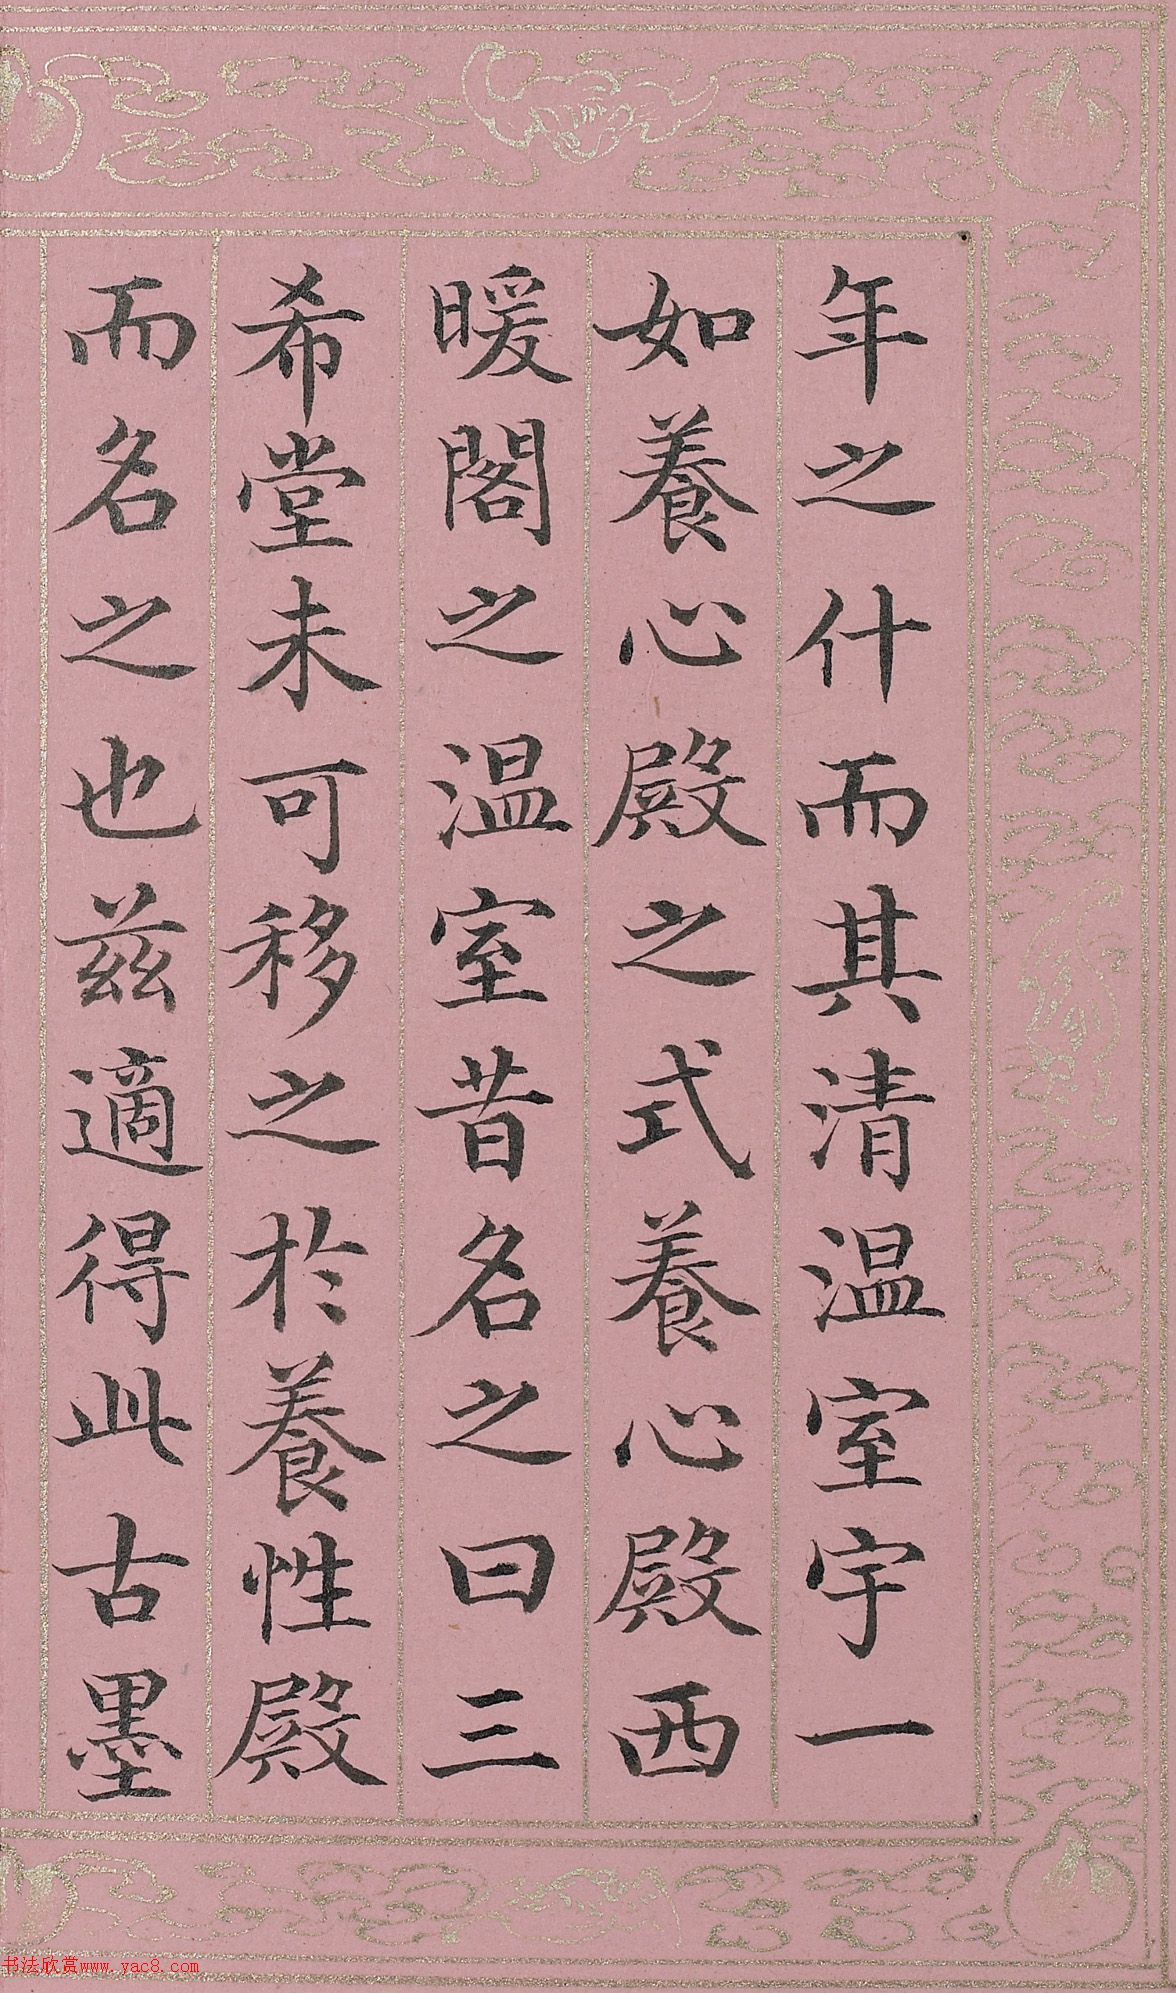 年之什而其清温室宇一
如養心殿之式養心殿西
暖閣之温室昔名之曰三
希堂未可移之於養性殿
而名之也兹適得此古墨
书法欣赏www.yac8.com